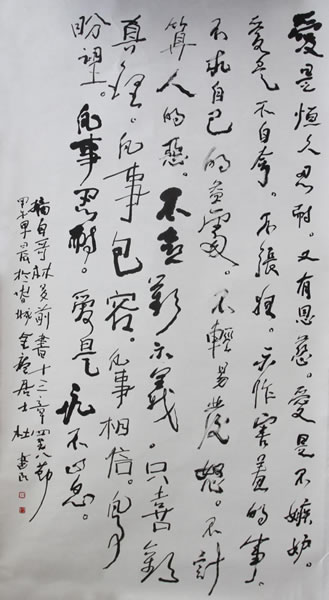 愛是恒久忍耐。又有恩慈。愛是不嫉妒。
愛是不自夸。不張狂。不作害羞的事。
不求自己的益處。不輕易發怒。不計
算人的惡。不喜歡不義。只喜歡
真理。凡事包容。凡事相信。凡事
盼望。凡事忍耐。愛是永不止息。
摘自哥林多前書十三章四至八節
早晨於城居士杜